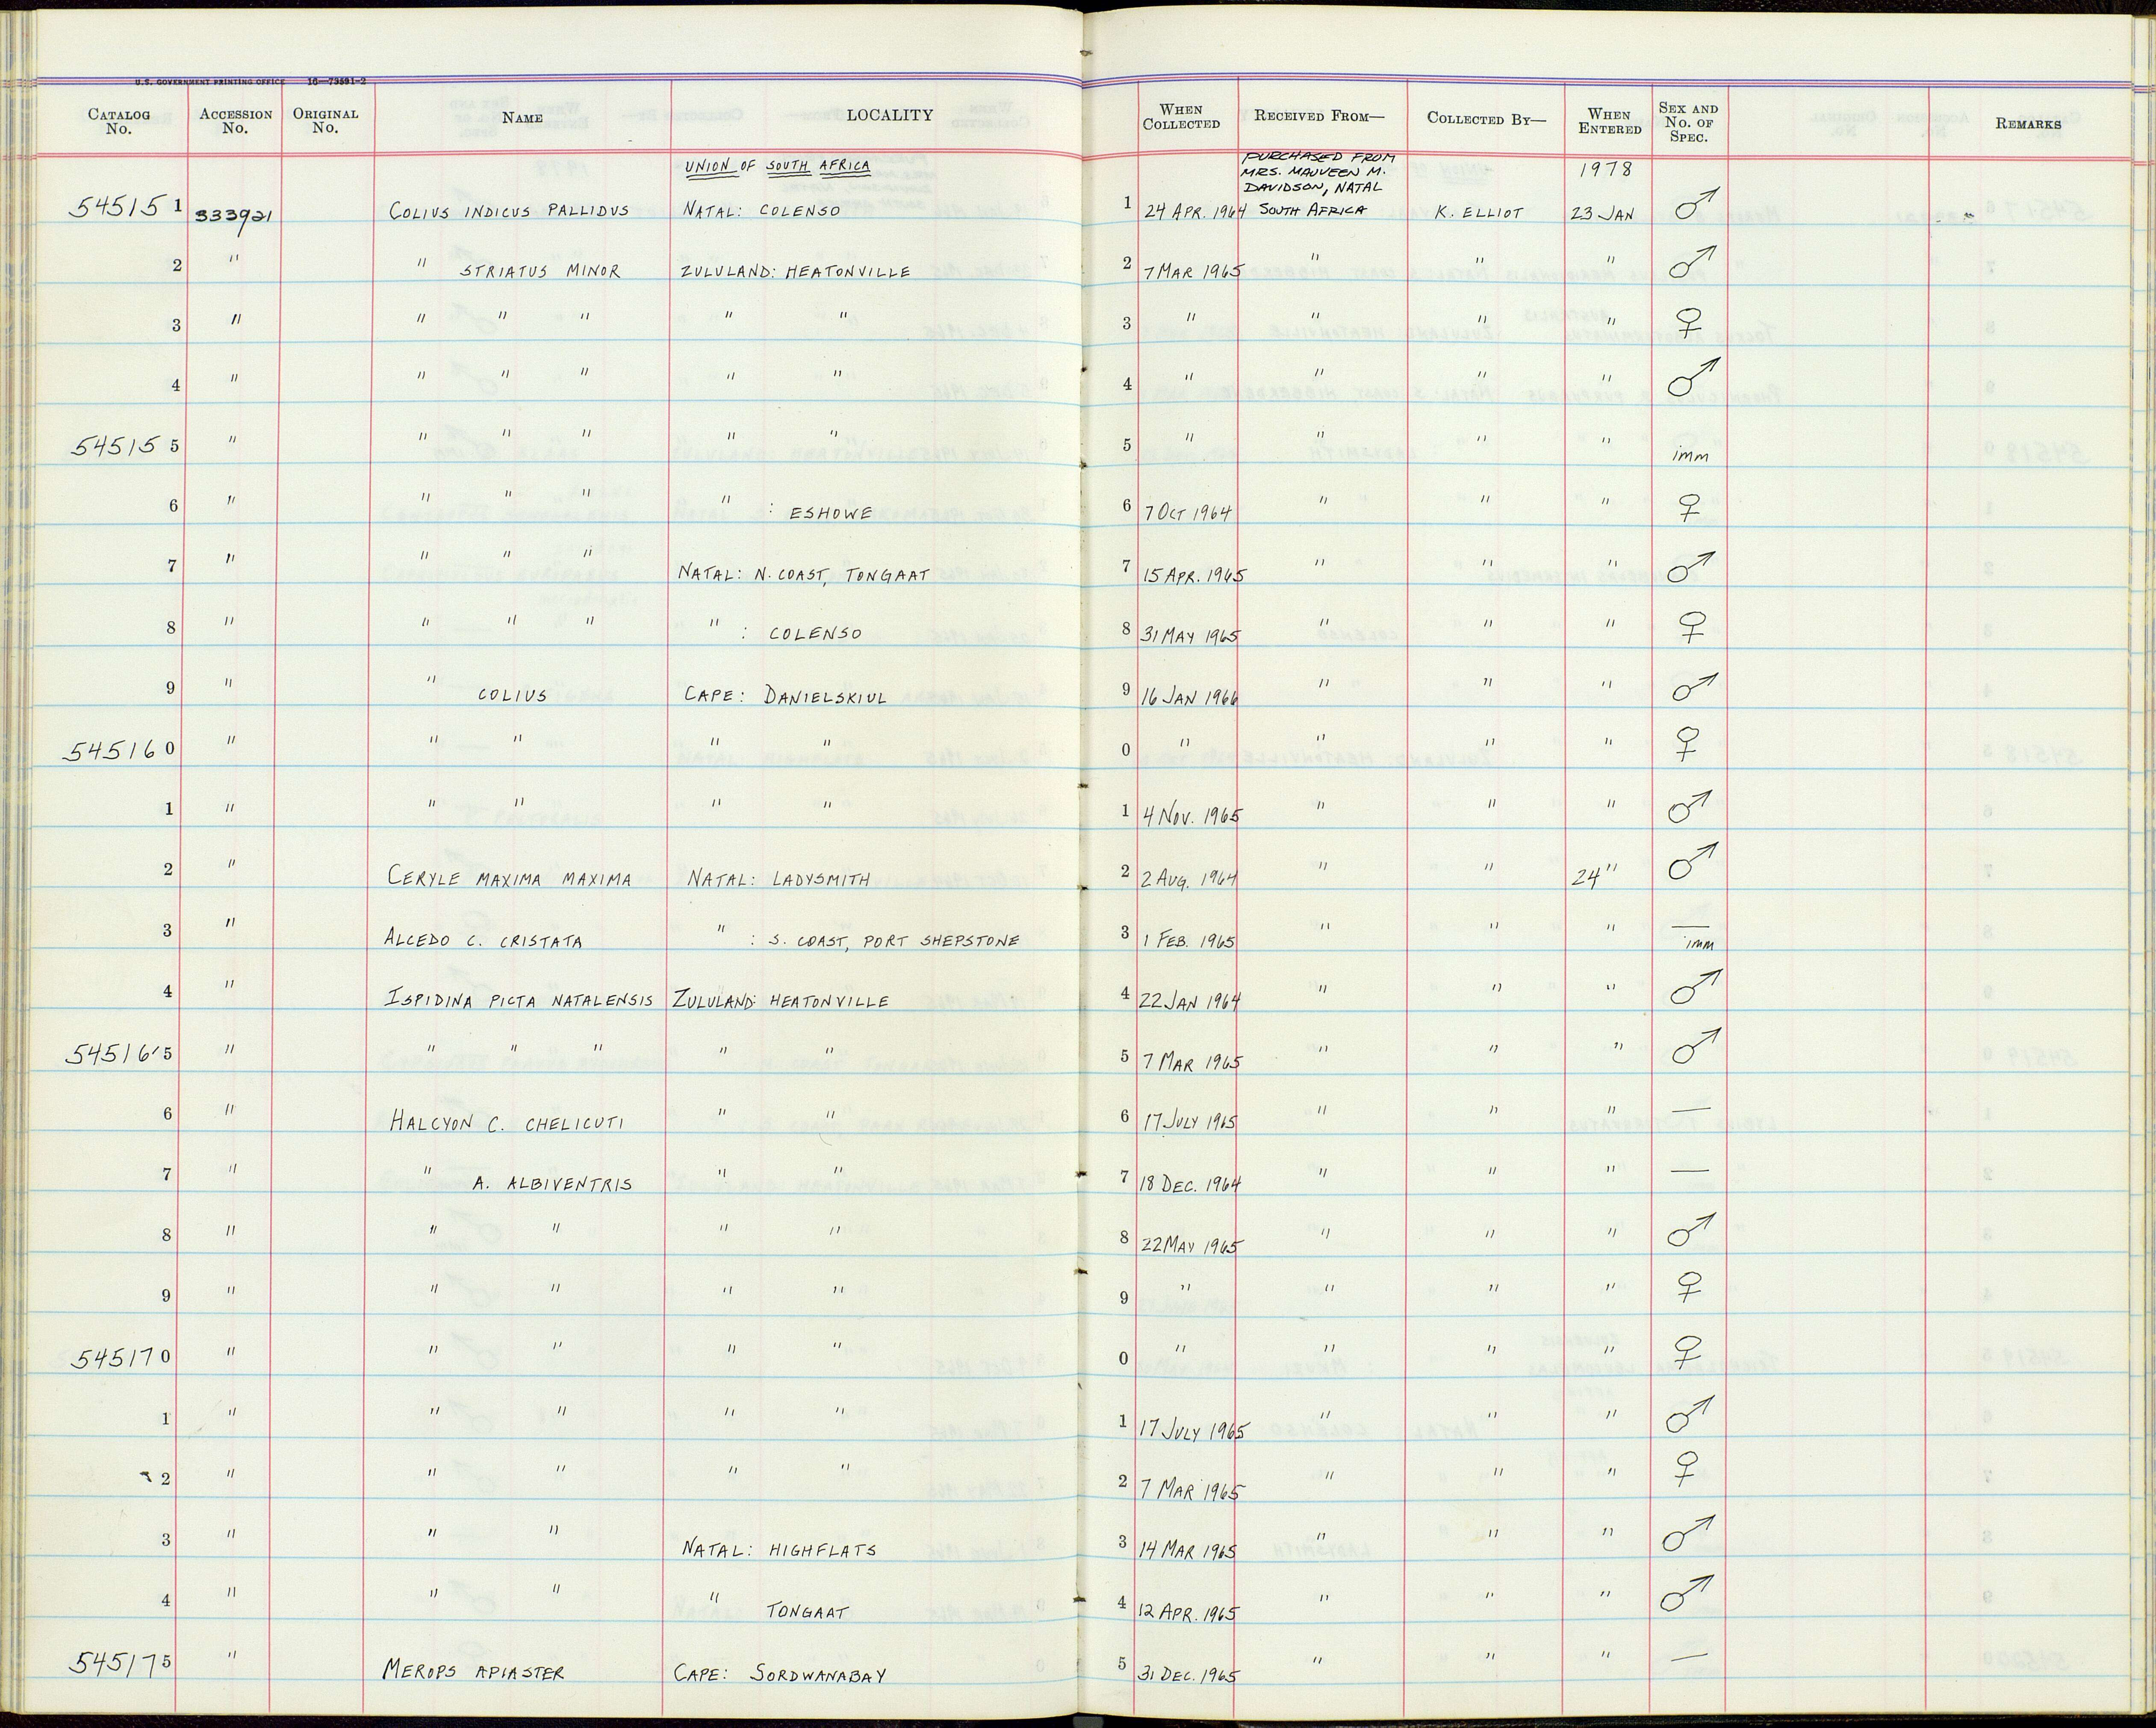 U.S. GOVERNMENT PRINTING OFFICE 16—73591-2
CATALOG No. ACCESSION No. ORIGINAL No. NAME LOCALITY WHEN COLLECTED RECEIVED FROM— COLLECTED BY— WHEN ENTERED SEX AND No. OF SPEC. REMARKS
UNION OF SOUTH AFRICA PURCHASED FROM MRS. MAUVEEN M. DAVIDSON, NATAL 1978
545151 333921 COLIUS INDICUS PALLIDUS NATAL: COLENSO 1 24 APR. 1964 SOUTH AFRICA K. ELLIOT 23 JAN ♂
2 " " STRIATUS MINOR ZULULAND: HEATONVILLE 2 7 MAR 1965 " " " ♂
3 " " " " " " 3 " " " " ♀
4 " " " " " " 4 " " " " ♂
545155 " " " " " " 5 " " " " imm
6 " " " " " : ESHOWE 6 7 OCT 1964 " " " ♀
7 " " " " NATAL: N. COAST, TONGAAT 7 15 APR. 1965 " " " ♂
8 " " " " " : COLENSO 8 31 MAY 1965 " " " ♀
9 " " COLIUS CAPE: DANIELSKIUL 9 16 JAN 1966 " " " ♂
545160 " " " " " 0 " " " " ♀
1 " " " " " 1 4 NOV. 1965 " " " ♂
2 " CERYLE MAXIMA MAXIMA NATAL: LADYSMITH 2 2 AUG. 1964 " " 24 " ♂
3 " ALCEDO C. CRISTATA " : S. COAST, PORT SHEPSTONE 3 1 FEB. 1965 " " " — imm
4 " ISPIDINA PICTA NATALENSIS ZULULAND: HEATONVILLE 4 22 JAN 1964 " " " ♂
545165 " " " " " " 5 7 MAR 1965 " " " ♂
6 " HALCYON C. CHELICUTI " " 6 17 JULY 1965 " " " —
7 " " A. ALBIVENTRIS " " 7 18 DEC. 1964 " " " —
8 " " " " " 8 22 MAY 1965 " " " ♂
9 " " " " " 9 " " " " ♀
545170 " " " " " 0 " " " " ♀
1 " " " " " 1 17 JULY 1965 " " " ♂
2 " " " " " 2 7 MAR 1965 " " " ♀
3 " " " NATAL: HIGHFLATS 3 14 MAR 1965 " " " ♂
4 " " " " TONGAAT 4 12 APR. 1965 " " " ♂
545175 " MEROPS APIASTER CAPE: SORDWANABAY 5 31 DEC. 1965 " " " —